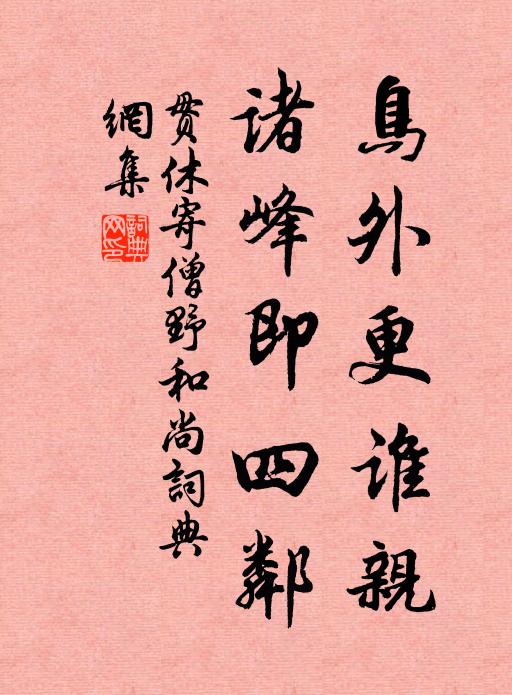 鳥外更誰親
諸峰即四鄰
貫休寄僧野和尚詞典
網集
詞典
网印